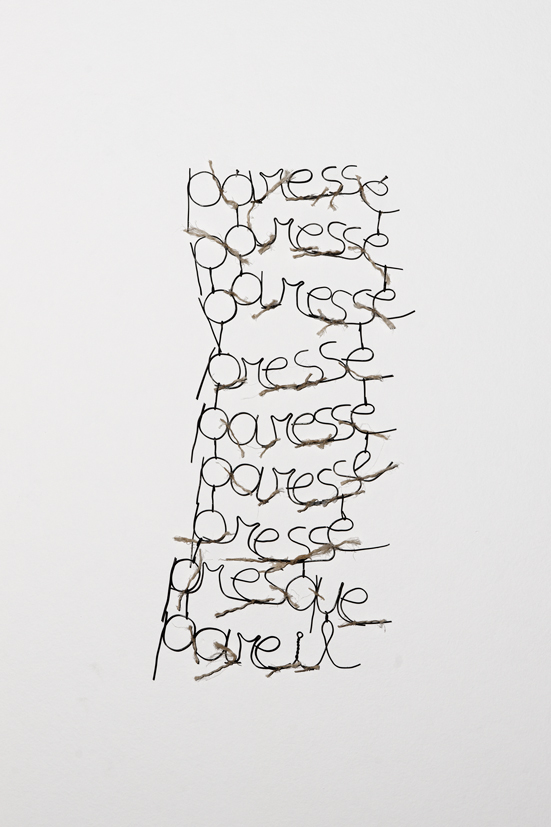 paresse
paresse
paresse
presse
paresse
paresse
presse
presque
pareil